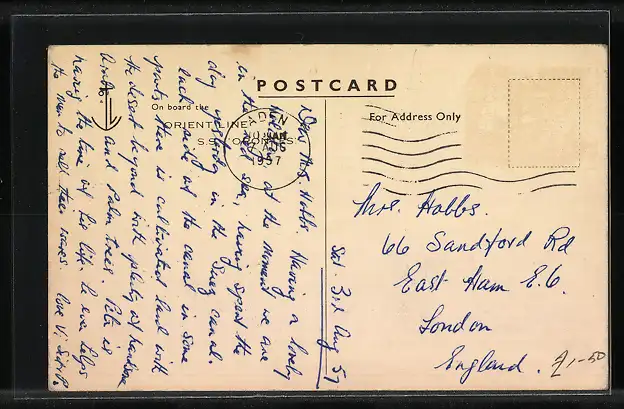 POSTCARD
On board the
ORIENT LINE
S.S. "ORONTES"
ADEN
7 AUG
1957
For Address Only
Sat 3rd Aug 57
Dear Mrs. Hobbs. Having a lovely
time at the moment we are
in the Red Sea, having spent the
day yesterday in the Suez Canal.
each side of the canal in some
parts there is cultivated land with
the desert beyond with plenty of
and palm trees. Pete is
having the time of his life. he even helps
the men to sell their wares. love Vi,
Mrs. Hobbs.
66 Sandford Rd
East Ham E.6.
London
England.
£1-50